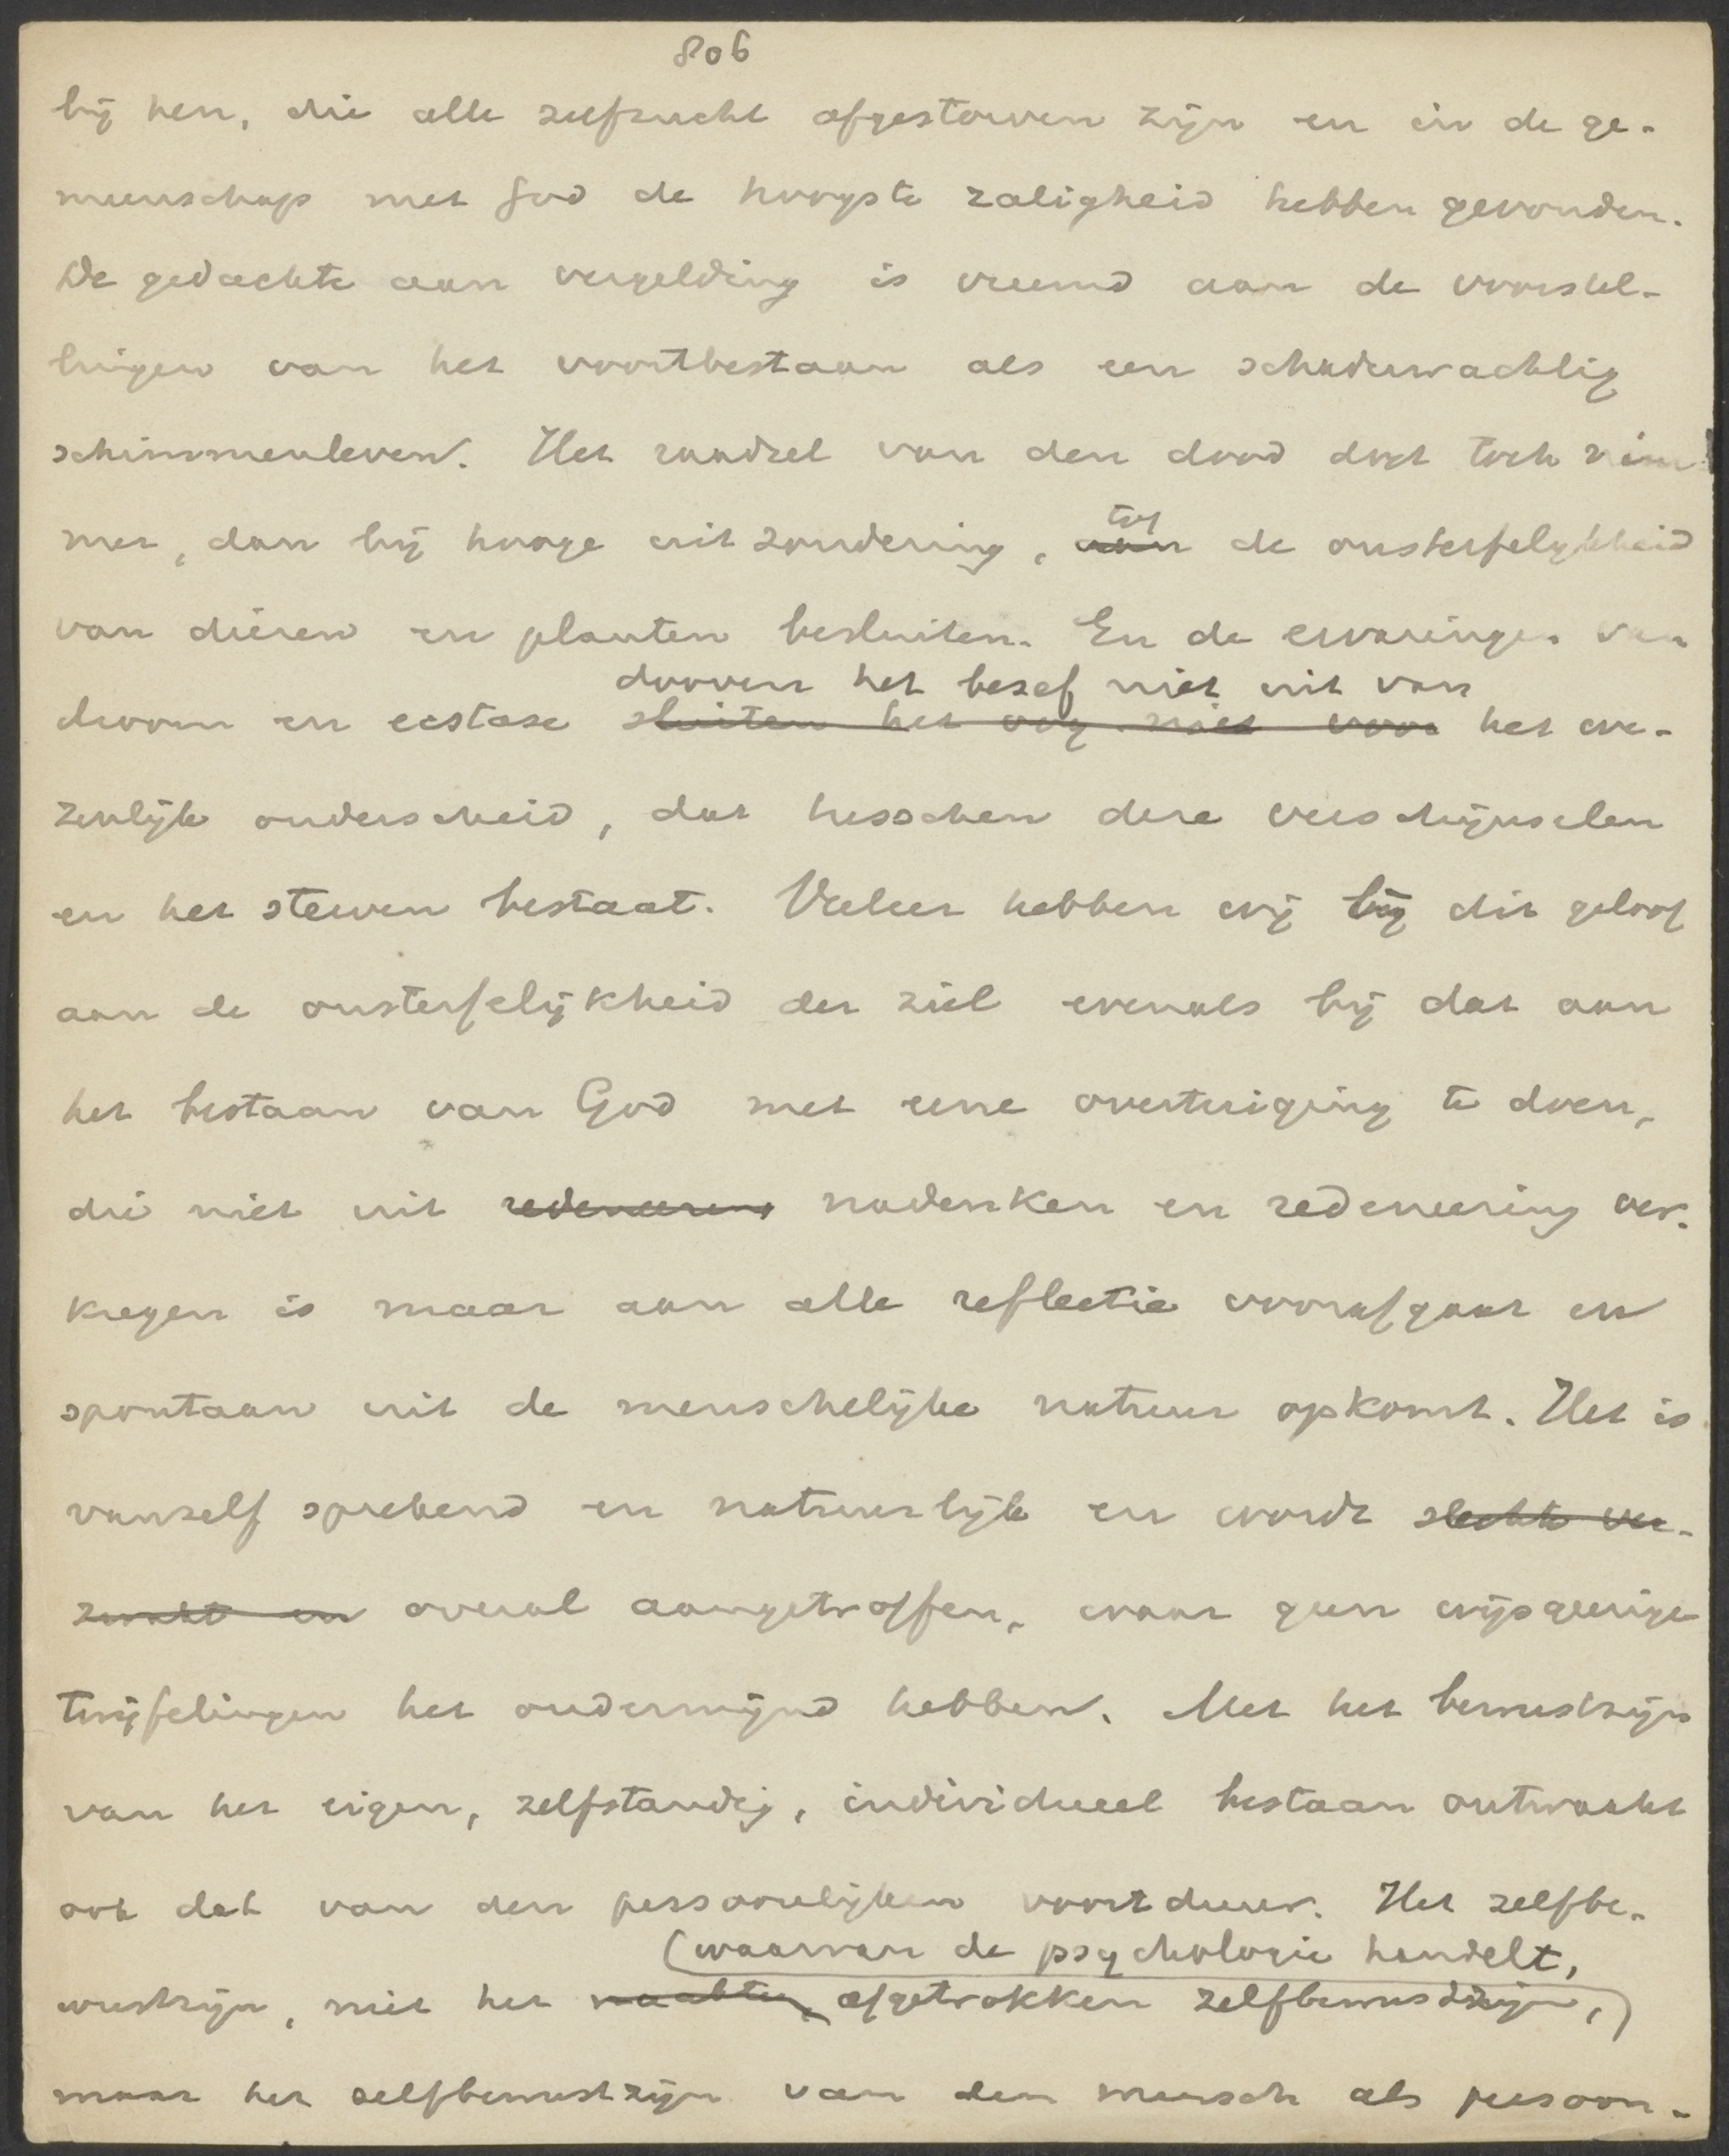 806
bij hen, die alle zelfzucht afgestorven zijn en in de ge-
meenschap met God de hoogste zaligheid hebben gevonden.
De gedachte aan vergelding is vreemd aan de voorstel-
lingen van het voortbestaan als een schaduwachtig
schimmenleven. Het raadsel van den dood doet toch nim
mer, dan bij hooge uitzondering, aan tot de onsterfelijkheid
van dieren en planten besluiten. En de ervaringen van
dooven het besef niet uit van
droom en ecstase sluiten het oog niet voor het we-
zenlijk onderscheid, dat tusschen deze verschijnselen
en het sterven bestaat. Veeleer hebben wij bij dit geloof
aan de onsterfelijkheid der ziel evenals bij dat aan
het bestaan van God met eene overtuiging te doen,
die niet uit redeneering nadenken en redeneering ver-
kregen is maar aan alle reflectie voorafgaat en
spontaan uit de menschelijke natuur opkomt. Het is
vanzelf sprekend en natuurlijk en wordt slechts ver-
zwakt en overal aangetroffen, waar geen wijsgeerige
twijfelingen het ondermijnd hebben. Met het bewustzijn
van het eigen, zelfstandig, individueel bestaan ontwaakt
ook dat van den persoonlijken voortduur. Het zelfbe-
(waarvan de psychologie handelt,
wustzijn, niet het naakte, afgetrokken zelfbewustzijn,)
maar het zelfbewustzijn van den mensch als persoon-